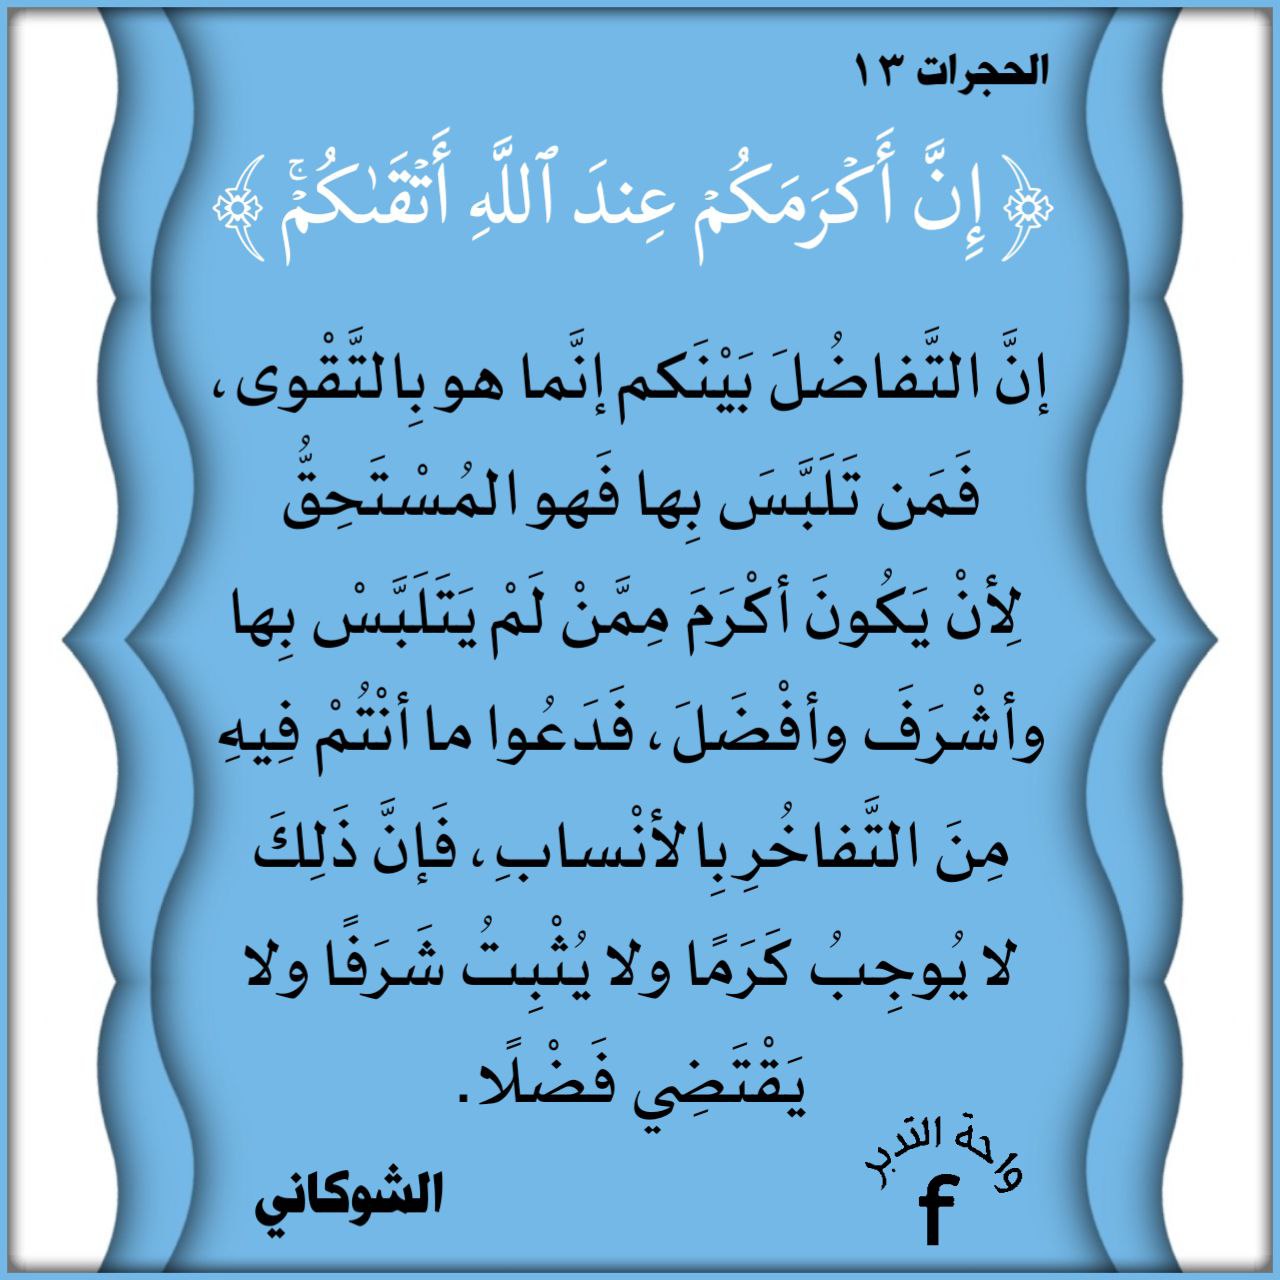 الحجرات ١٣
﴿ إِنَّ أَكۡرَمَكُمۡ عِندَ ٱللَّهِ أَتۡقَىٰكُمۡۚ ﴾
إنَّ التَّفاضُلَ بَيْنَكم إنَّما هو بِالتَّقْوى،
فَمَن تَلَبَّسَ بِها فَهو المُسْتَحِقُّ
لِأنْ يَكُونَ أكْرَمَ مِمَّنْ لَمْ يَتَلَبَّسْ بِها
وأشْرَفَ وأفْضَلَ، فَدَعُوا ما أنْتُمْ فِيهِ
مِنَ التَّفاخُرِ بِالأنْسابِ، فَإنَّ ذَلِكَ
لا يُوجِبُ كَرَمًا ولا يُثْبِتُ شَرَفًا ولا
يَقْتَضِي فَضْلًا.
واحة التدبر
f
الشوكاني